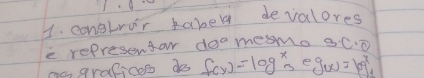 1. construir tabela de valores
e representar do mesmo s.c.o
os graficos de f(x)=log x e g(x)=log x